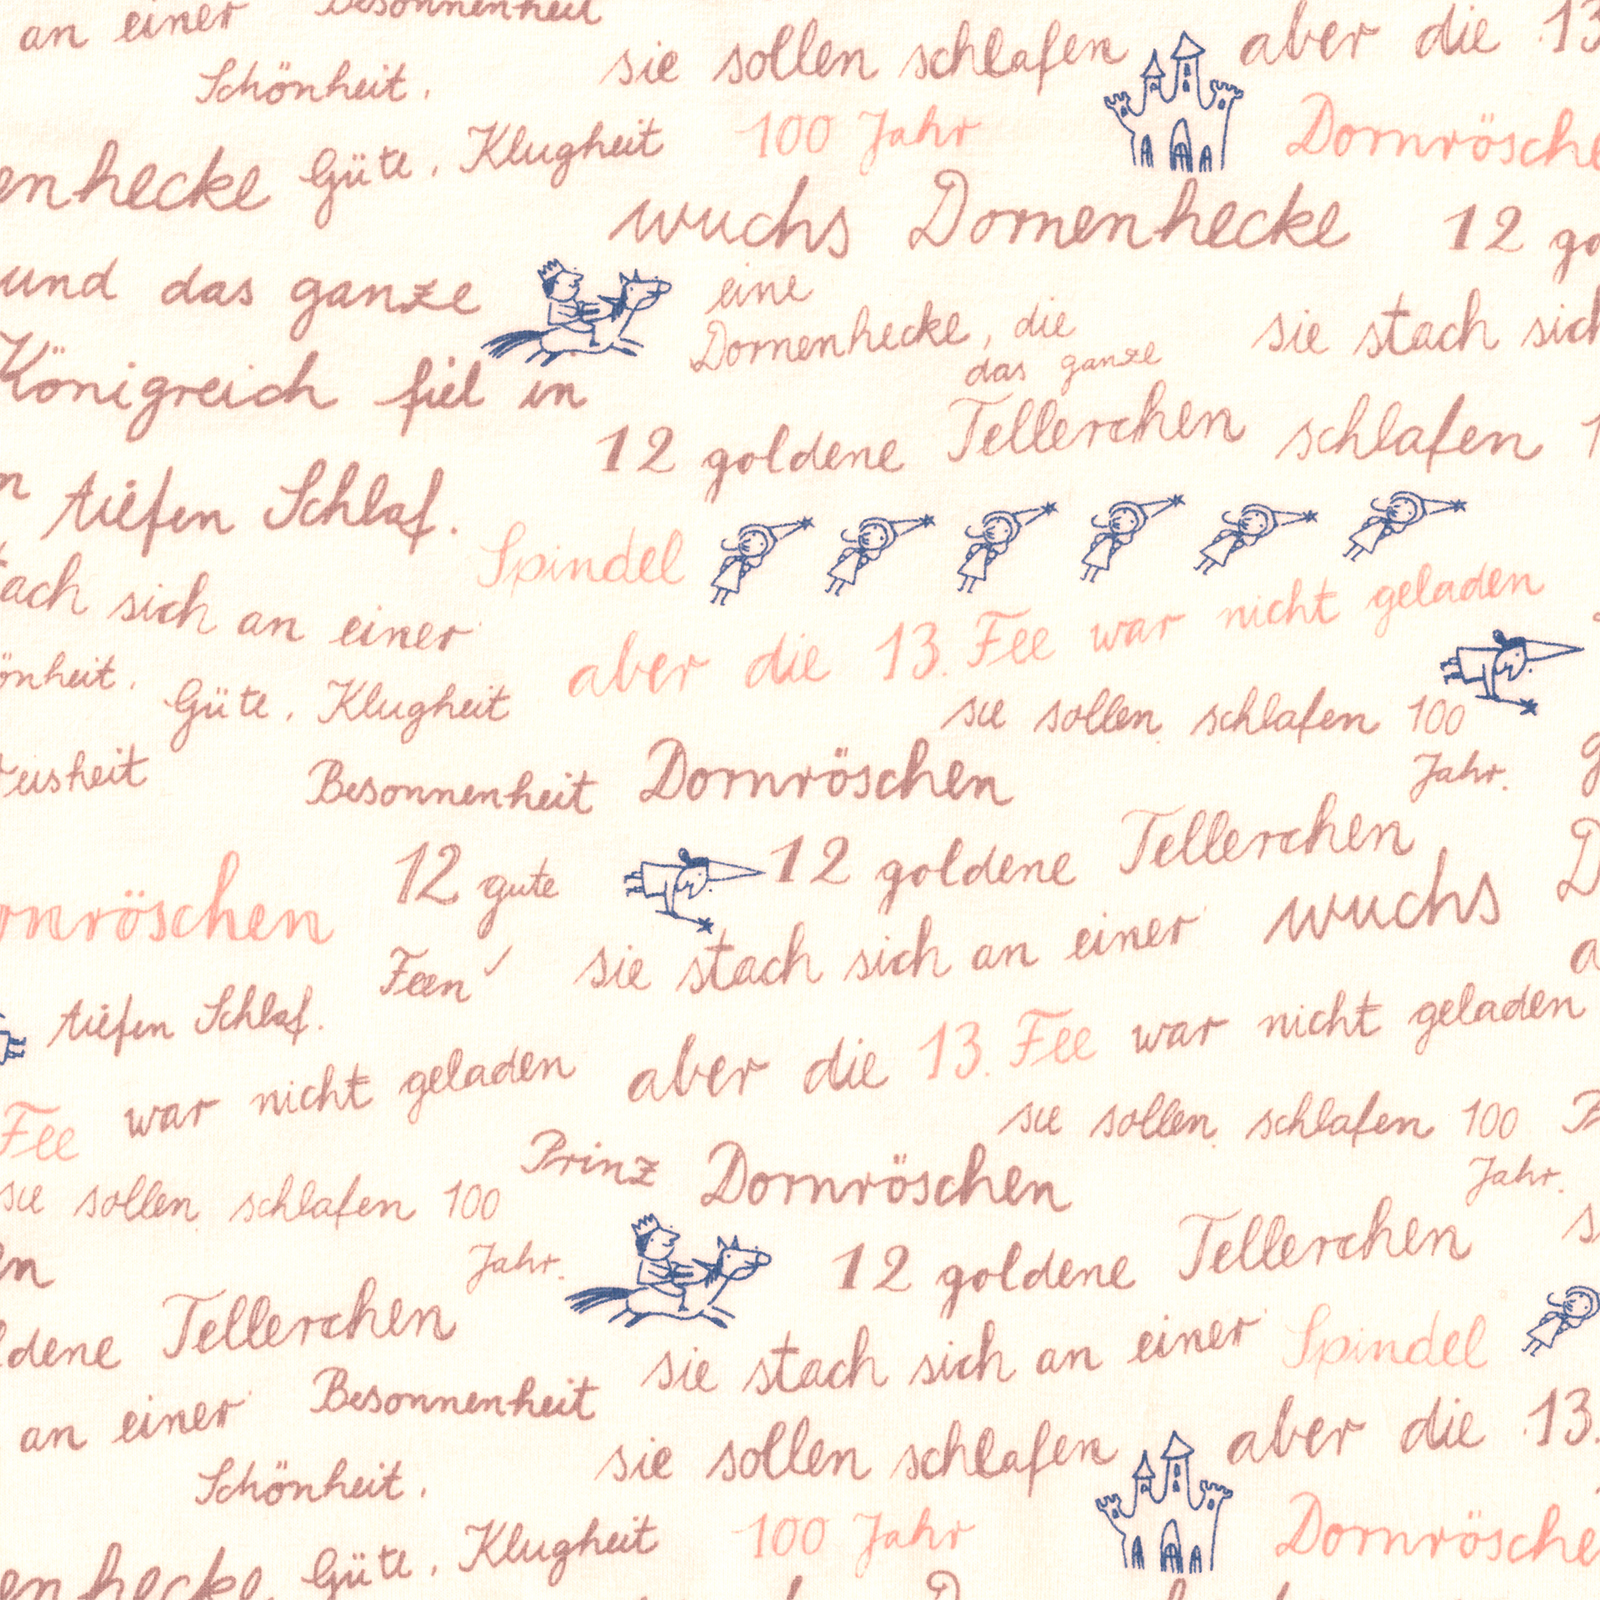 an einer Besonnenheit
sie sollen schlafen aber die 13
Schönheit.
100 Jahr Dornrösche
enhecke Güte, Klugheit
wuchs Dornenhecke 12 go
und das ganze eine
Dornenhecke, die sie stach sich
das ganze
Königreich fiel in
12 goldene Tellerchen schlafen 1
n tiefen Schlaf.
Spindel
tach sich an einer
aber die 13. Fee war nicht geladen
önheit. Güte, Klugheit
sie sollen schlafen 100
Jahr.
eisheit Besonnenheit Dornröschen
12 gute 12 goldene Tellerchen
ornröschen
Feen sie stach sich an einer wuchs D
tiefen Schlaf.
aber die 13. Fee war nicht geladen
Fee war nicht geladen
sie sollen schlafen 100
Jahr.
Prinz Dornröschen
sie sollen schlafen 100
Jahr.
en
12 goldene Tellerchen
ldene Tellerchen
sie stach sich an einer Spindel
an einer Besonnenheit
sie sollen schlafen aber die 13.
Schönheit.
100 Jahr Dornrösche
enhecke Güte, Klugheit